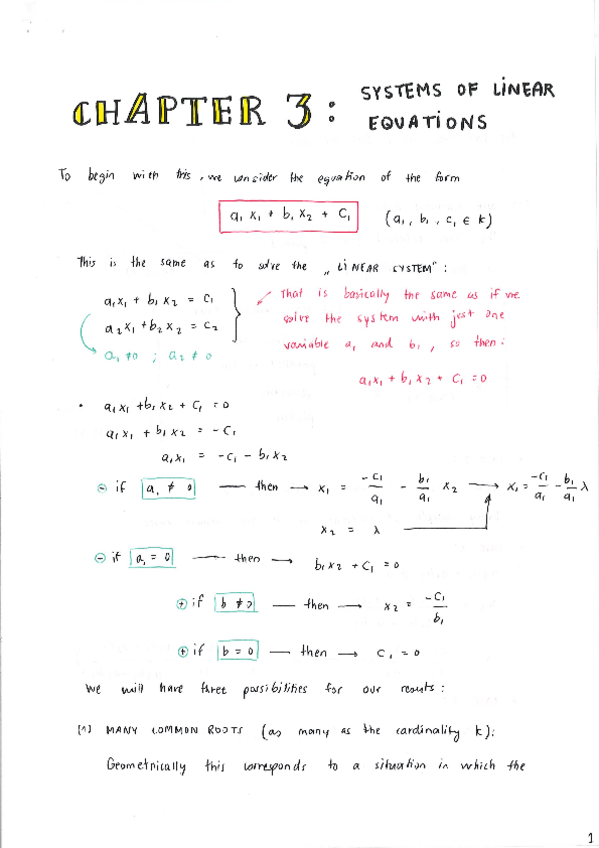 CHAPTER 3: SYSTEMS OF LINEAR
EQUATIONS
To begin with this, we consider the equation of the form
a₁ x₁ + b₁ x₂ + C₁ (a₁, b₁, c₁ ∈ k)
This is the same as to solve the „LINEAR SYSTEM":
a₁x₁ + b₁ x₂ = C₁
a₂x₁ + b₂ x₂ = C₂
a₁ ≠ 0 ; a₂ ≠ 0
That is basically the same as if we
solve the system with just one
variable a₁ and b₁, so then:
a₁x₁ + b₁x₂ + C₁ = 0
• a₁x₁ + b₁x₂ + C₁ = 0
a₁x₁ + b₁x₂ = -C₁
a₁x₁ = -C₁ - b₁x₂
⊖ if a₁ ≠ 0 — then → x₁ = -C₁/a₁ - b₁/a₁ x₂ → x₁ = -C₁/a₁ - b₁/a₁ λ
x₂ = λ
⊖ if a₁ = 0 — then → b₁x₂ + C₁ = 0
⊕ if b ≠ 0 — then → x₂ = -C₁/b₁
⊕ if b = 0 — then → C₁ = 0
We will have three possibilities for our results:
[1] MANY COMMON ROOTS (as many as the cardinality k):
Geometrically this corresponds to a situation in which the
1